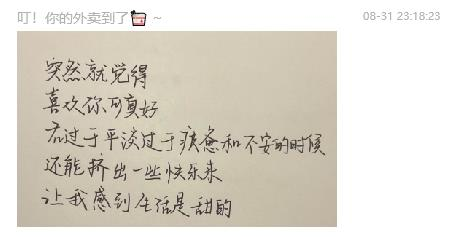 叮！你的外卖到了🥤～
08-31 23:18:23
突然就觉得
喜欢你可真好
在过于平淡过于疲惫和不安的时候
还能挤出一些快乐来
让我感到生活是甜的